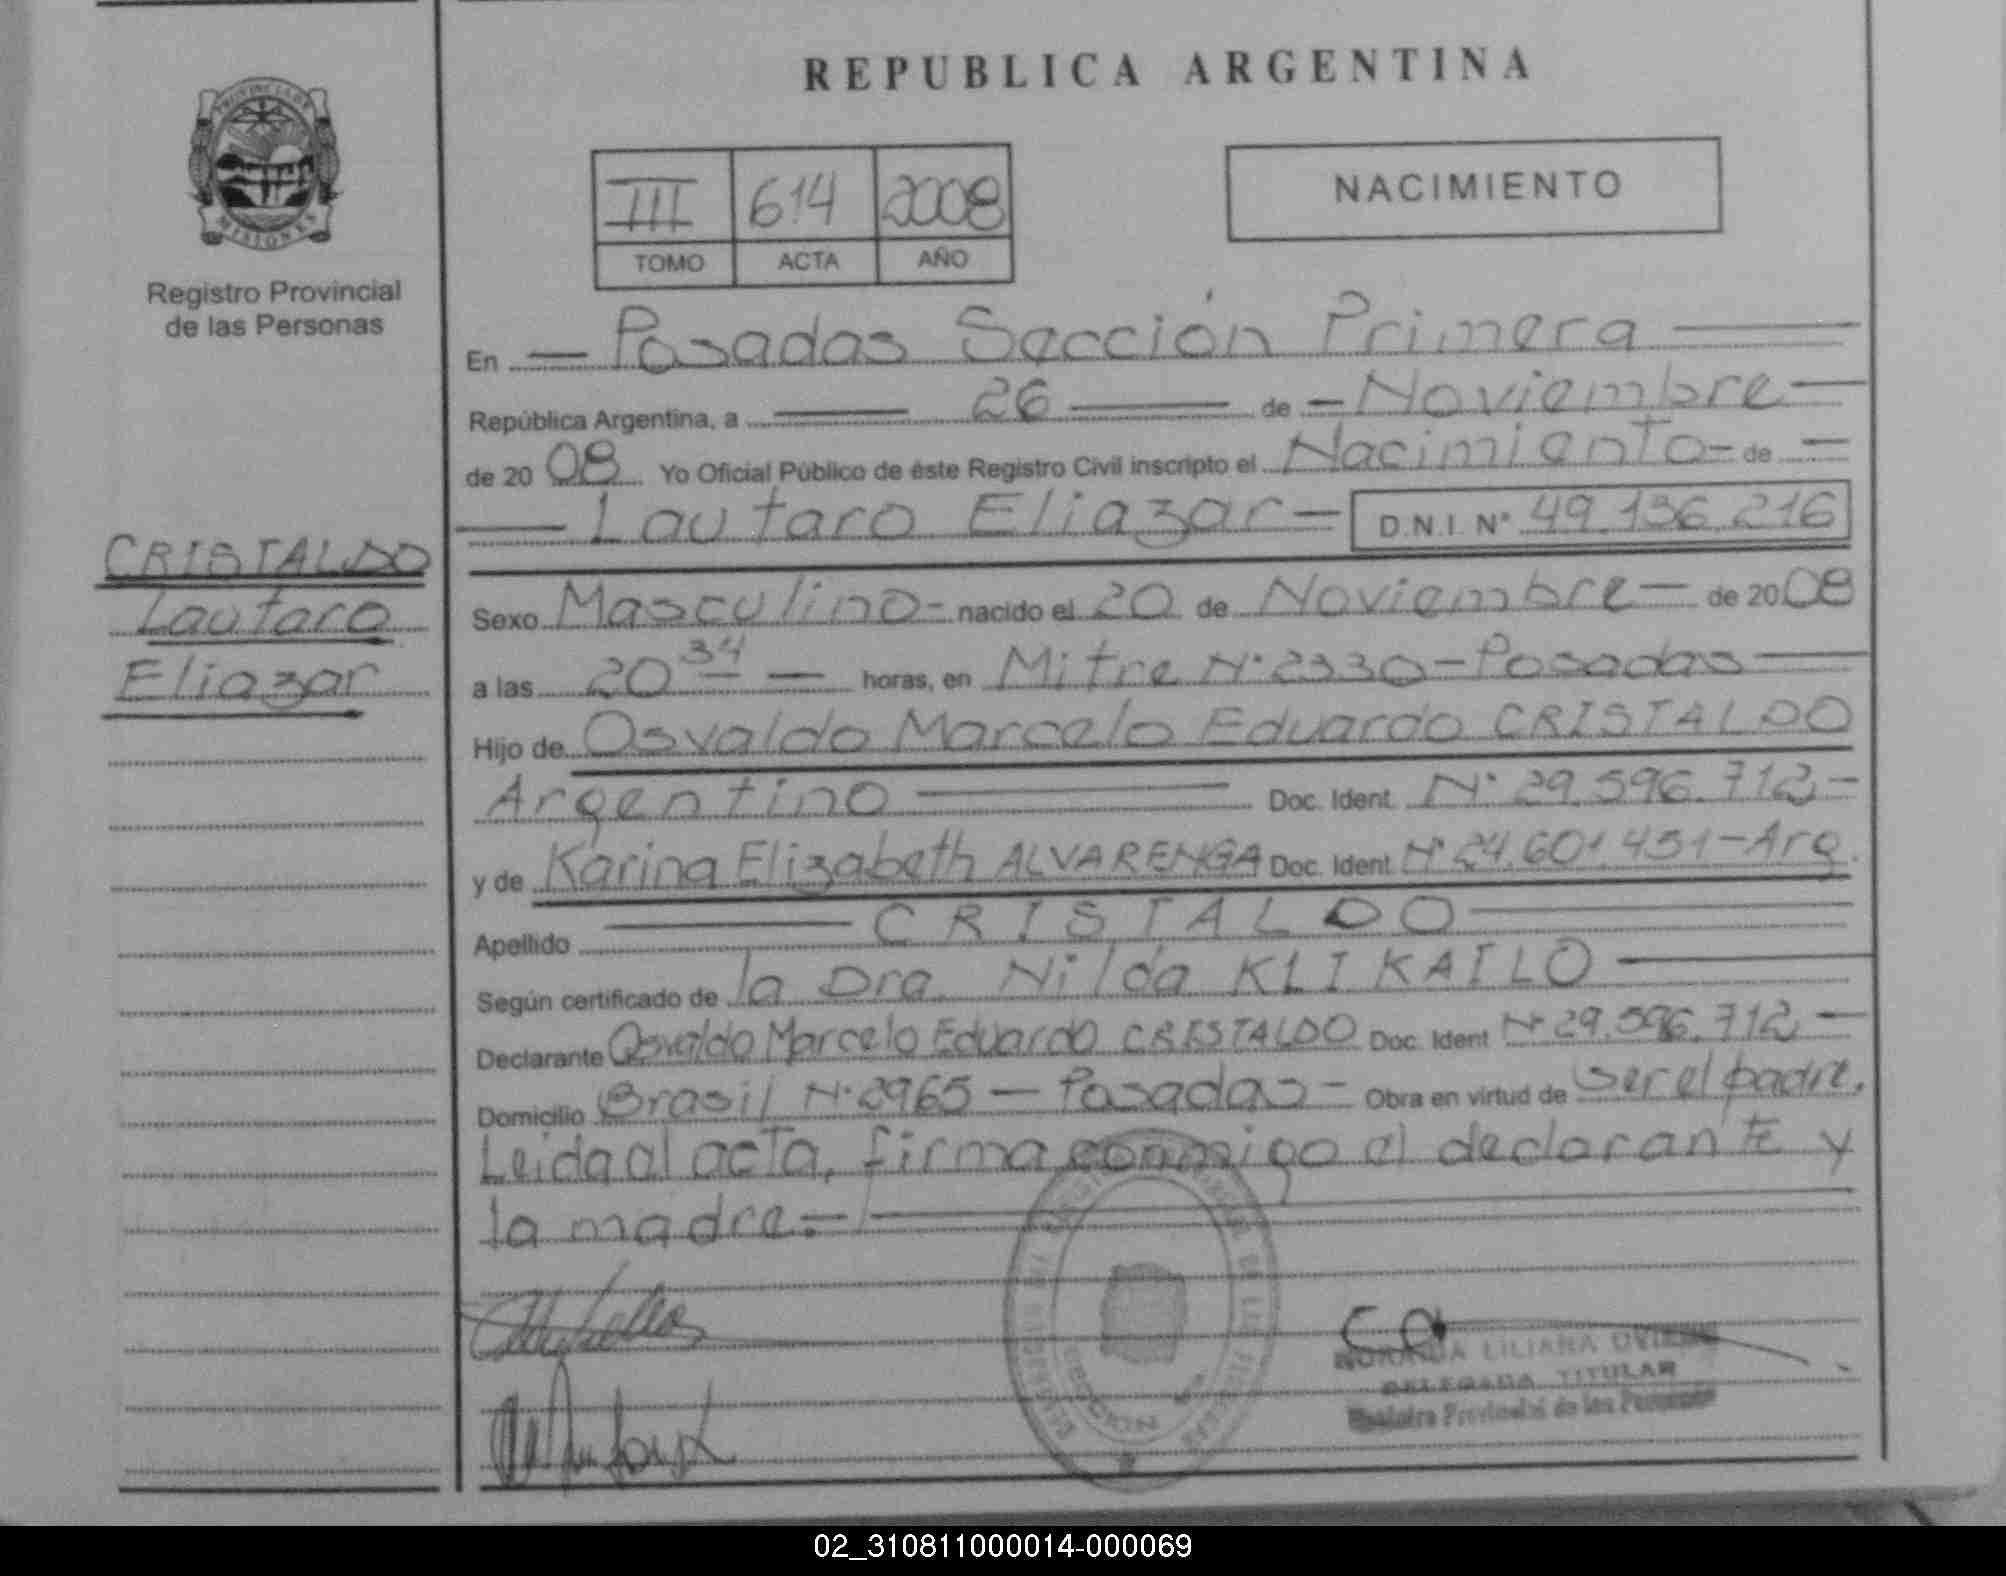 REPUBLICA ARGENTINA
PROVINCIA DE
MISIONES
Registro Provincial
de las Personas
III 614 2008
TOMO ACTA AÑO
NACIMIENTO
En Posadas Sección Primera
República Argentina, a 26 de Noviembre
de 2008 Yo Oficial Público de éste Registro Civil inscripto el Nacimiento de
Lautaro Eliazar D.N.I. Nº 49.136.216
CRISTALDO
Lautaro
Eliazar
Sexo Masculino nacido el 20 de Noviembre de 2008
a las 20 34 horas, en Mitre Nº 2330 - Posadas
Hijo de Osvaldo Marcelo Eduardo CRISTALDO
Argentino Doc. Ident. Nº 29.596.712
y de Karina Elizabeth ALVARENGA Doc. Ident. Nº 24.601.451 - Arg.
Apellido CRISTALDO
Según certificado de la Dra. Nilda KLIKAILO
Declarante Osvaldo Marcelo Eduardo CRISTALDO Doc. Ident Nº 29.596.712
Domicilio Brasil Nº 2965 - Posadas - Obra en virtud de ser el padre.
Leida al acta, firma conmigo el declarante y
la madre.-
LILIANA
DELEGADA TITULAR
Registro Provincial de las Personas
02_310811000014-000069